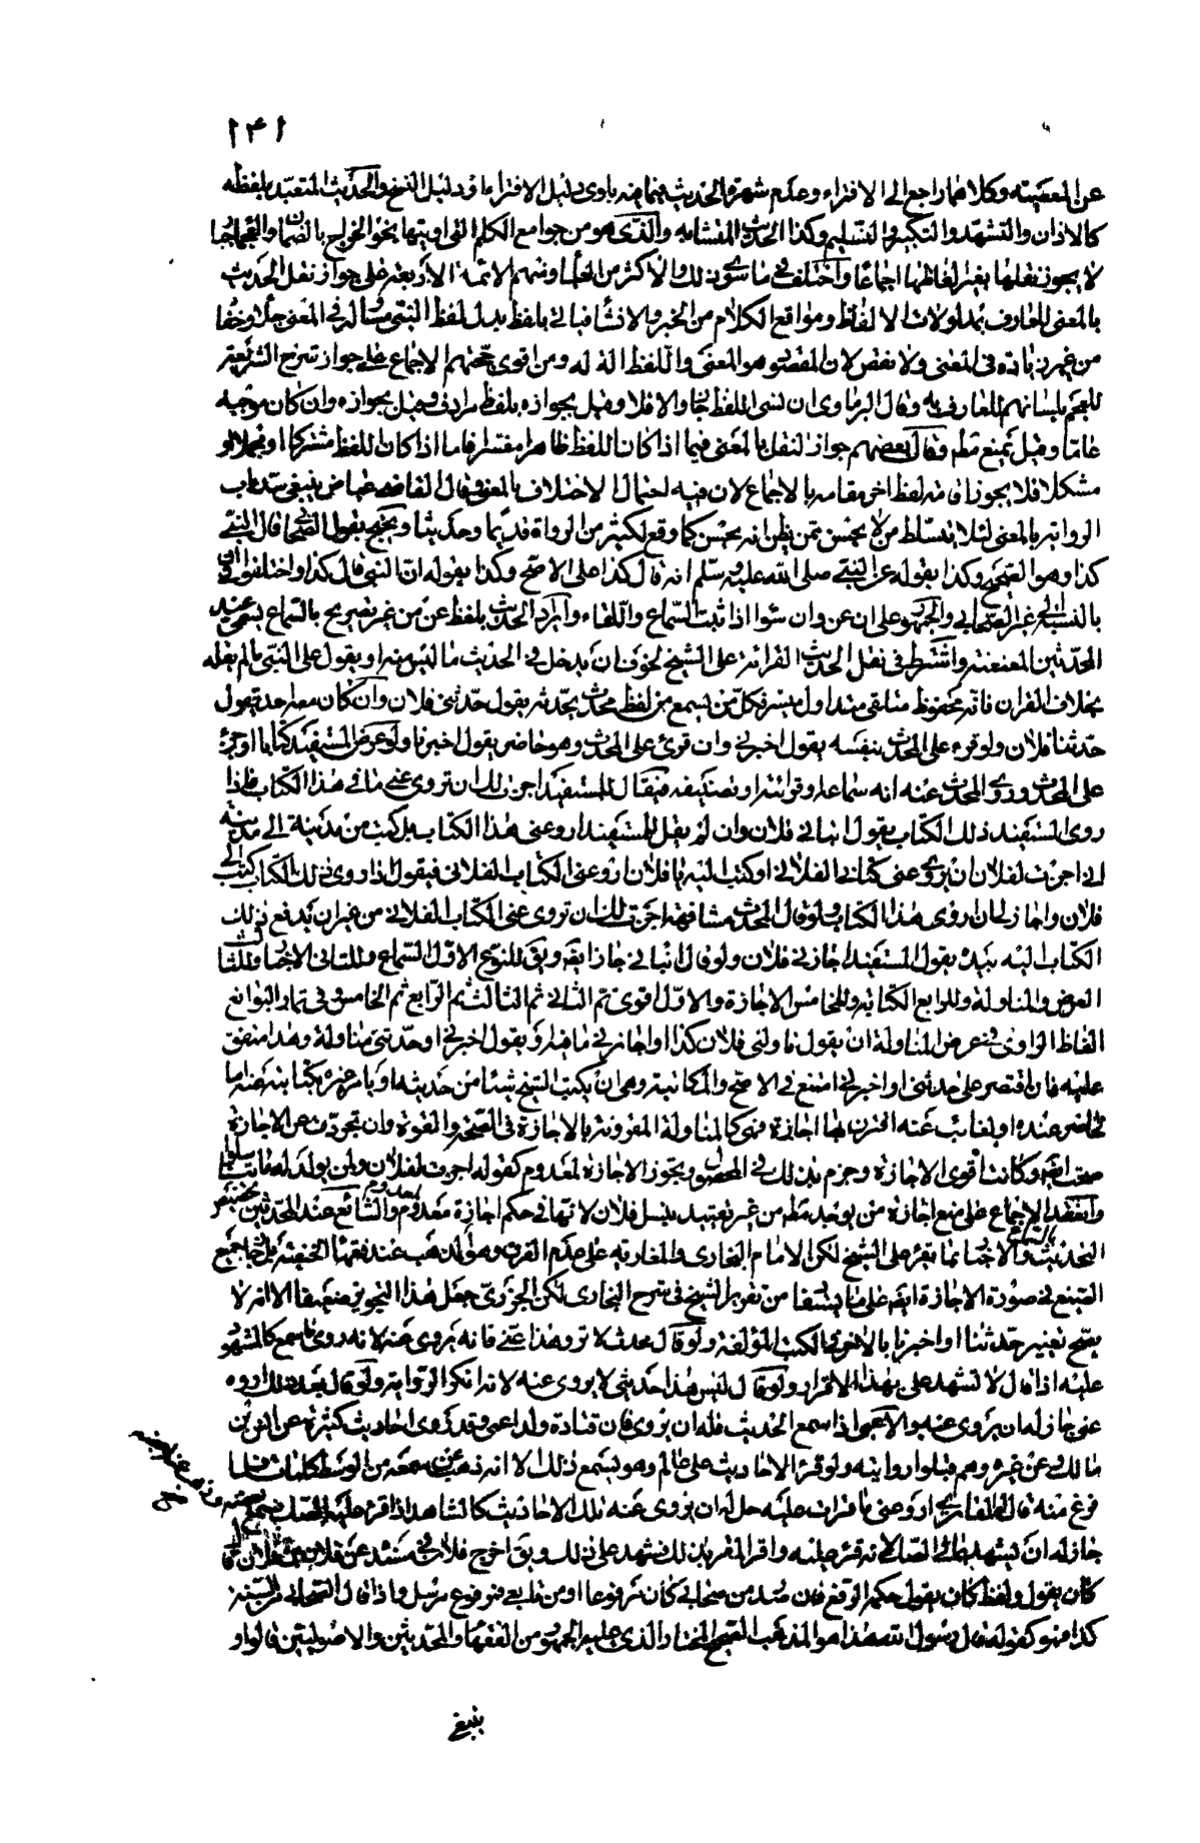 ١٤١
عن المعصية وكلاهما راجع الى الافتراء وعدم شهرة الحديث بلفظه
كالاذان والتشهد والتكبير والتسليم وكذا الحديث المتشابه والذى هو من جوامع الكلم التى اوتيها نحو الخراج بالضمان والعجماء جبار
لا يجوز نقلها بغير لفاظها اجماعا واختلف فى ما سوى ذلك والاكثر من العلماء ومنهم الائمة الاربعة على جواز نقل الحديث
بالمعنى للعارف بمدلولات الالفاظ ومواقع الكلام من الخبر والانشاء فياتى بلفظ بدل لفظ النبى مساو له فى المعنى جلاء وخفاء
من غير زيادة فى المعنى ولا نقص لان المقصود هو المعنى واللفظ الة له ومن اقوى حججهم الاجماع على جواز شرح الشريعة
للعجم بلسانهم للعارف به وقال الماوردى ان نسى اللفظ جاز والا فلا وقيل بجوازه بلفظ مرادف وقيل بجوازه وان كان موجبه
عاما وقيل بمنع مطلقا وقال بعضهم جواز النقل بالمعنى فيما اذا كان اللفظ ظاهرا مفسرا فاما اذا كان اللفظ مشتركا او مجملا او
مشكلا فلا يجوز اقامة لفظ اخر مقامه بالاجماع لان فيه احتمال الاختلاف بالمعنى وقال القاضى عياض ينبغى سد باب
الرواية بالمعنى لئلا يتسلط من لا يحسن ممن يظن انه يحسن كما وقع لكثير من الرواة قديما وحديثا ويحتج بقول الصحابى قال النبى
كذا وهو الصحيح وكذا بقوله عن النبى صلى الله عليه وسلم انه قال كذا على الاصح وكذا بقوله ان النبى قال كذا واختلفوا فى
بالنسبة الى غير الصحابى والجمهور على ان عن وان سواء اذا ثبت السماع واللقاء وايراد الحديث بلفظ عن من غير تصريح بالسماع يسمى عند
المحدثين المعنعنة واشترط فى نقل الحديث القراءة على الشيخ لخوف ان يدخل فى الحديث ما ليس منه او يقول على النبى ما لم يقله
بخلاف القران فانه محفوظ متلقى متداول ميسر فكل من يسمع من لفظ محدث يحدثه يقول حدثنى فلان وان كان معه احد يقول
حدثنا فلان ولو قرء على المحدث بنفسه يقول اخبرنى وان قرئ على المحدث وهو حاضر يقول اخبرنا ولو عرض المستفيد كتابا او جزء
على المحدث وراى المحدث عنه انه سماعه او قرائته او تصنيفه فيقال للمستفيد اجزت لك ان تروى عنى ما فى هذا الكتاب فاذا
روى المستفيد ذلك الكتاب يقول انبانى فلان وان لم يقل للمستفيد ارو عنى هذا الكتاب بل كتب من مدينة الى مدينة
انى اجزت لفلان ان يروى عنى كتابى الفلانى او كتب اليه يا فلان ارو عنى الكتاب الفلانى فيقول اذا روى ذلك الكتاب كتب الى
فلان واجاز لى ان اروى هذا الكتاب ولو قال المحدث مشافهة اجزت لك ان تروى عنى الكتاب الفلانى من غير ان يدفع ذلك
الكتاب اليه بيده يقول المستفيد اجازنى فلان ولو قال انبانى جاز ايضا ويق للنوع الاول السماع وللثانى الاخبار وللثالث
العرض والمناولة وللرابع الكتابة وللخامس الاجازة والاول اقوى ثم الثانى ثم الثالث ثم الرابع ثم الخامس
الفاظ الراوى فى عرض المناولة ان يقول ناولنى فلان كذا او اجازنى ما فيه او يقول اخبرنى او حدثنى مناولة وهذا متفق
عليه فان اقتصر على حدثنى او اخبرنى امتنع فى الاصح والمكاتبة وهى ان يكتب الشيخ شيئا من حديثه او يامر غيره بكتابته عنه اما
لحاضر عنده او لغائب عنه اقترن بها اجازة فهى كالمناولة المقرونة بالاجازة فى الصحة والقوة وان تجردت عن الاجازة
صحت ايضا وكانت اقوى الاجازة وجزم بذلك فى المحصول ويجوز الاجازة لمعدوم كقوله اجزت لفلان ولمن يولد له ما تناسلوا
وانعقد الاجماع على منع اجازة من يوجد مطلقا من غير تقييد بنسل فلان لانها فى حكم اجازة معدوم والشائع عند المحدثين
التحديث والاخبار بما يقرء على الشيخ لكن الامام البخارى والمغاربة على عدم الفرق وهو المذهب عند فقهائنا الحنفية
فى صورة الاجازة ايضا على ما يستفاد من تقرير الشيخ فى شرح البخارى لكن الجزرى جعل هذا التجويز ضعيفا الا انه لا
يصح تغيير حدثنا او اخبرنا بالاخر فى الكتب المؤلفة ولو قال محدث لا ترو هذا عنى فانه يروى عنه لانه روى ما سمع كالمشهود
عليه اذا قال لا تشهد على بهذا الاقرار ولو قال ليس هذا حديثى لا يروى عنه لانه انكر الرواية ولو قال بعد ذلك اروه
عنى جاز له ان يروى عنه والاعمى اذا سمع الحديث فله ان يروى فان قتادة ولد اعمى وقد روى احاديث كثيرة عن انس بن
مالك وعن غيره وهم قبلوا روايته ولو قرئ الاحاديث على عالم وهو يسمع ذلك الا انه ذهب عن سمعه من الوسط كلمات فلما
فرغ منه قال للقارئ ارو عنى ما قرات عليه حل له ان يروى عنه تلك الاحاديث كالشاهد اذا قرئ عليه الصك
جاز له ان يشهد
كان يقول ولفظ كان يقول حكمه الرفع فان صدر من صحابى كان مرفوعا او من تابعى فمرفوع مرسل واذا قال الصحابى من السنة
كذا فهو كقوله قال رسول الله هذا هو المذهب الصحيح المختار والذى عليه الجمهور من الفقهاء والمحدثين والاصوليين قالوا و
ينبغى